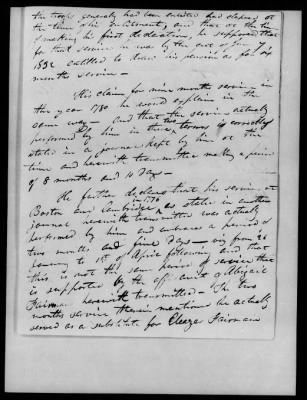 the troops generally had been enlisted had elapsed at
the time of his enlistment, and that at the time
of making his first declaration he supposed that
for that service he was by the act of June 7
1832 entitled to draw his pension as for six
months service -
His claim for nine months service in
the year 1780 he would explain in the
same way - and that the service actually
performed by him in those two terms is correctly
stated in a journal kept by him at the
time and herewith transmitted making a period
of 8 months and 10 days -
He further declares that his service at
Boston and Cambridge in 1776 as stated in another
journal herewith transmitted was actually
performed by him and embraces a period of
two months and five days - viz from
January to 1st of April following and that
this is not the same period of service that
is supported by the affidavit of Abigail
Fairman herewith transmitted - The two
months service therein mentioned he actually
served as a substitute for Eleazer Fairman